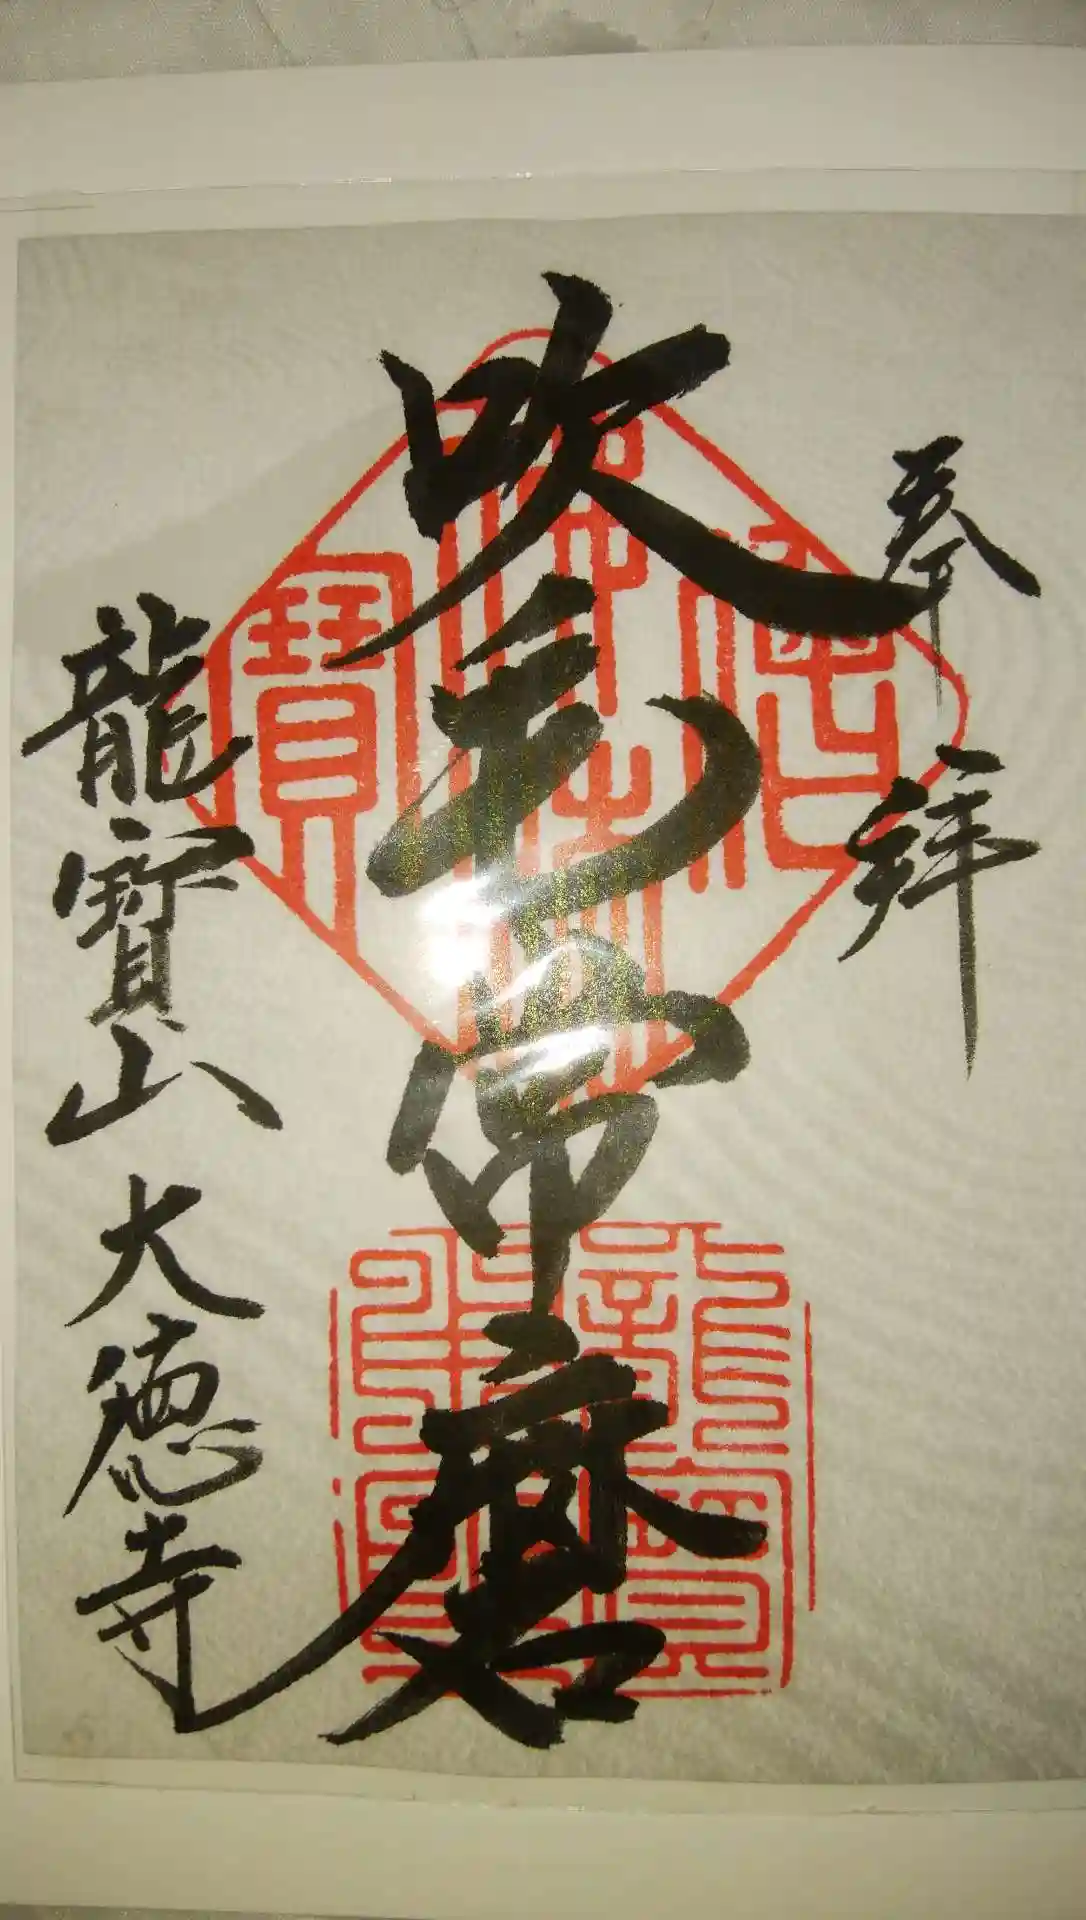 奉拝
吹毛常磨
龍寶山 大徳寺